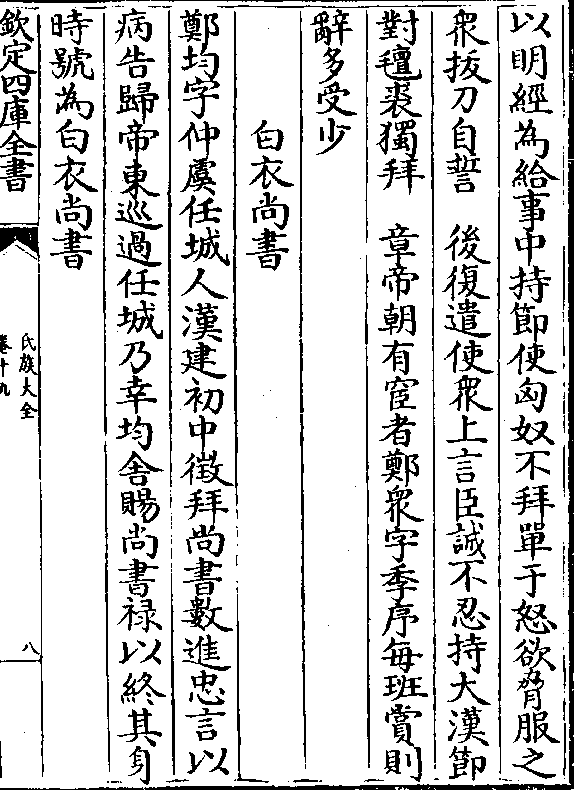 以明經為給事中持節使匈奴不拜單于怒欲脅服之
衆拔刀自誓　後復遣使衆上言臣誠不忍持大漢節
對氊裘獨拜　章帝朝有宦者鄭衆字季序每班賞則
辭多受少
白衣尚書
鄭均字仲虞任城人漢建初中徵拜尚書數進忠言以
病告歸帝東巡過任城乃幸均舍賜尚書禄以終其身
時號為白衣尚書
欽定四庫全書
氏族大全
卷十九
八